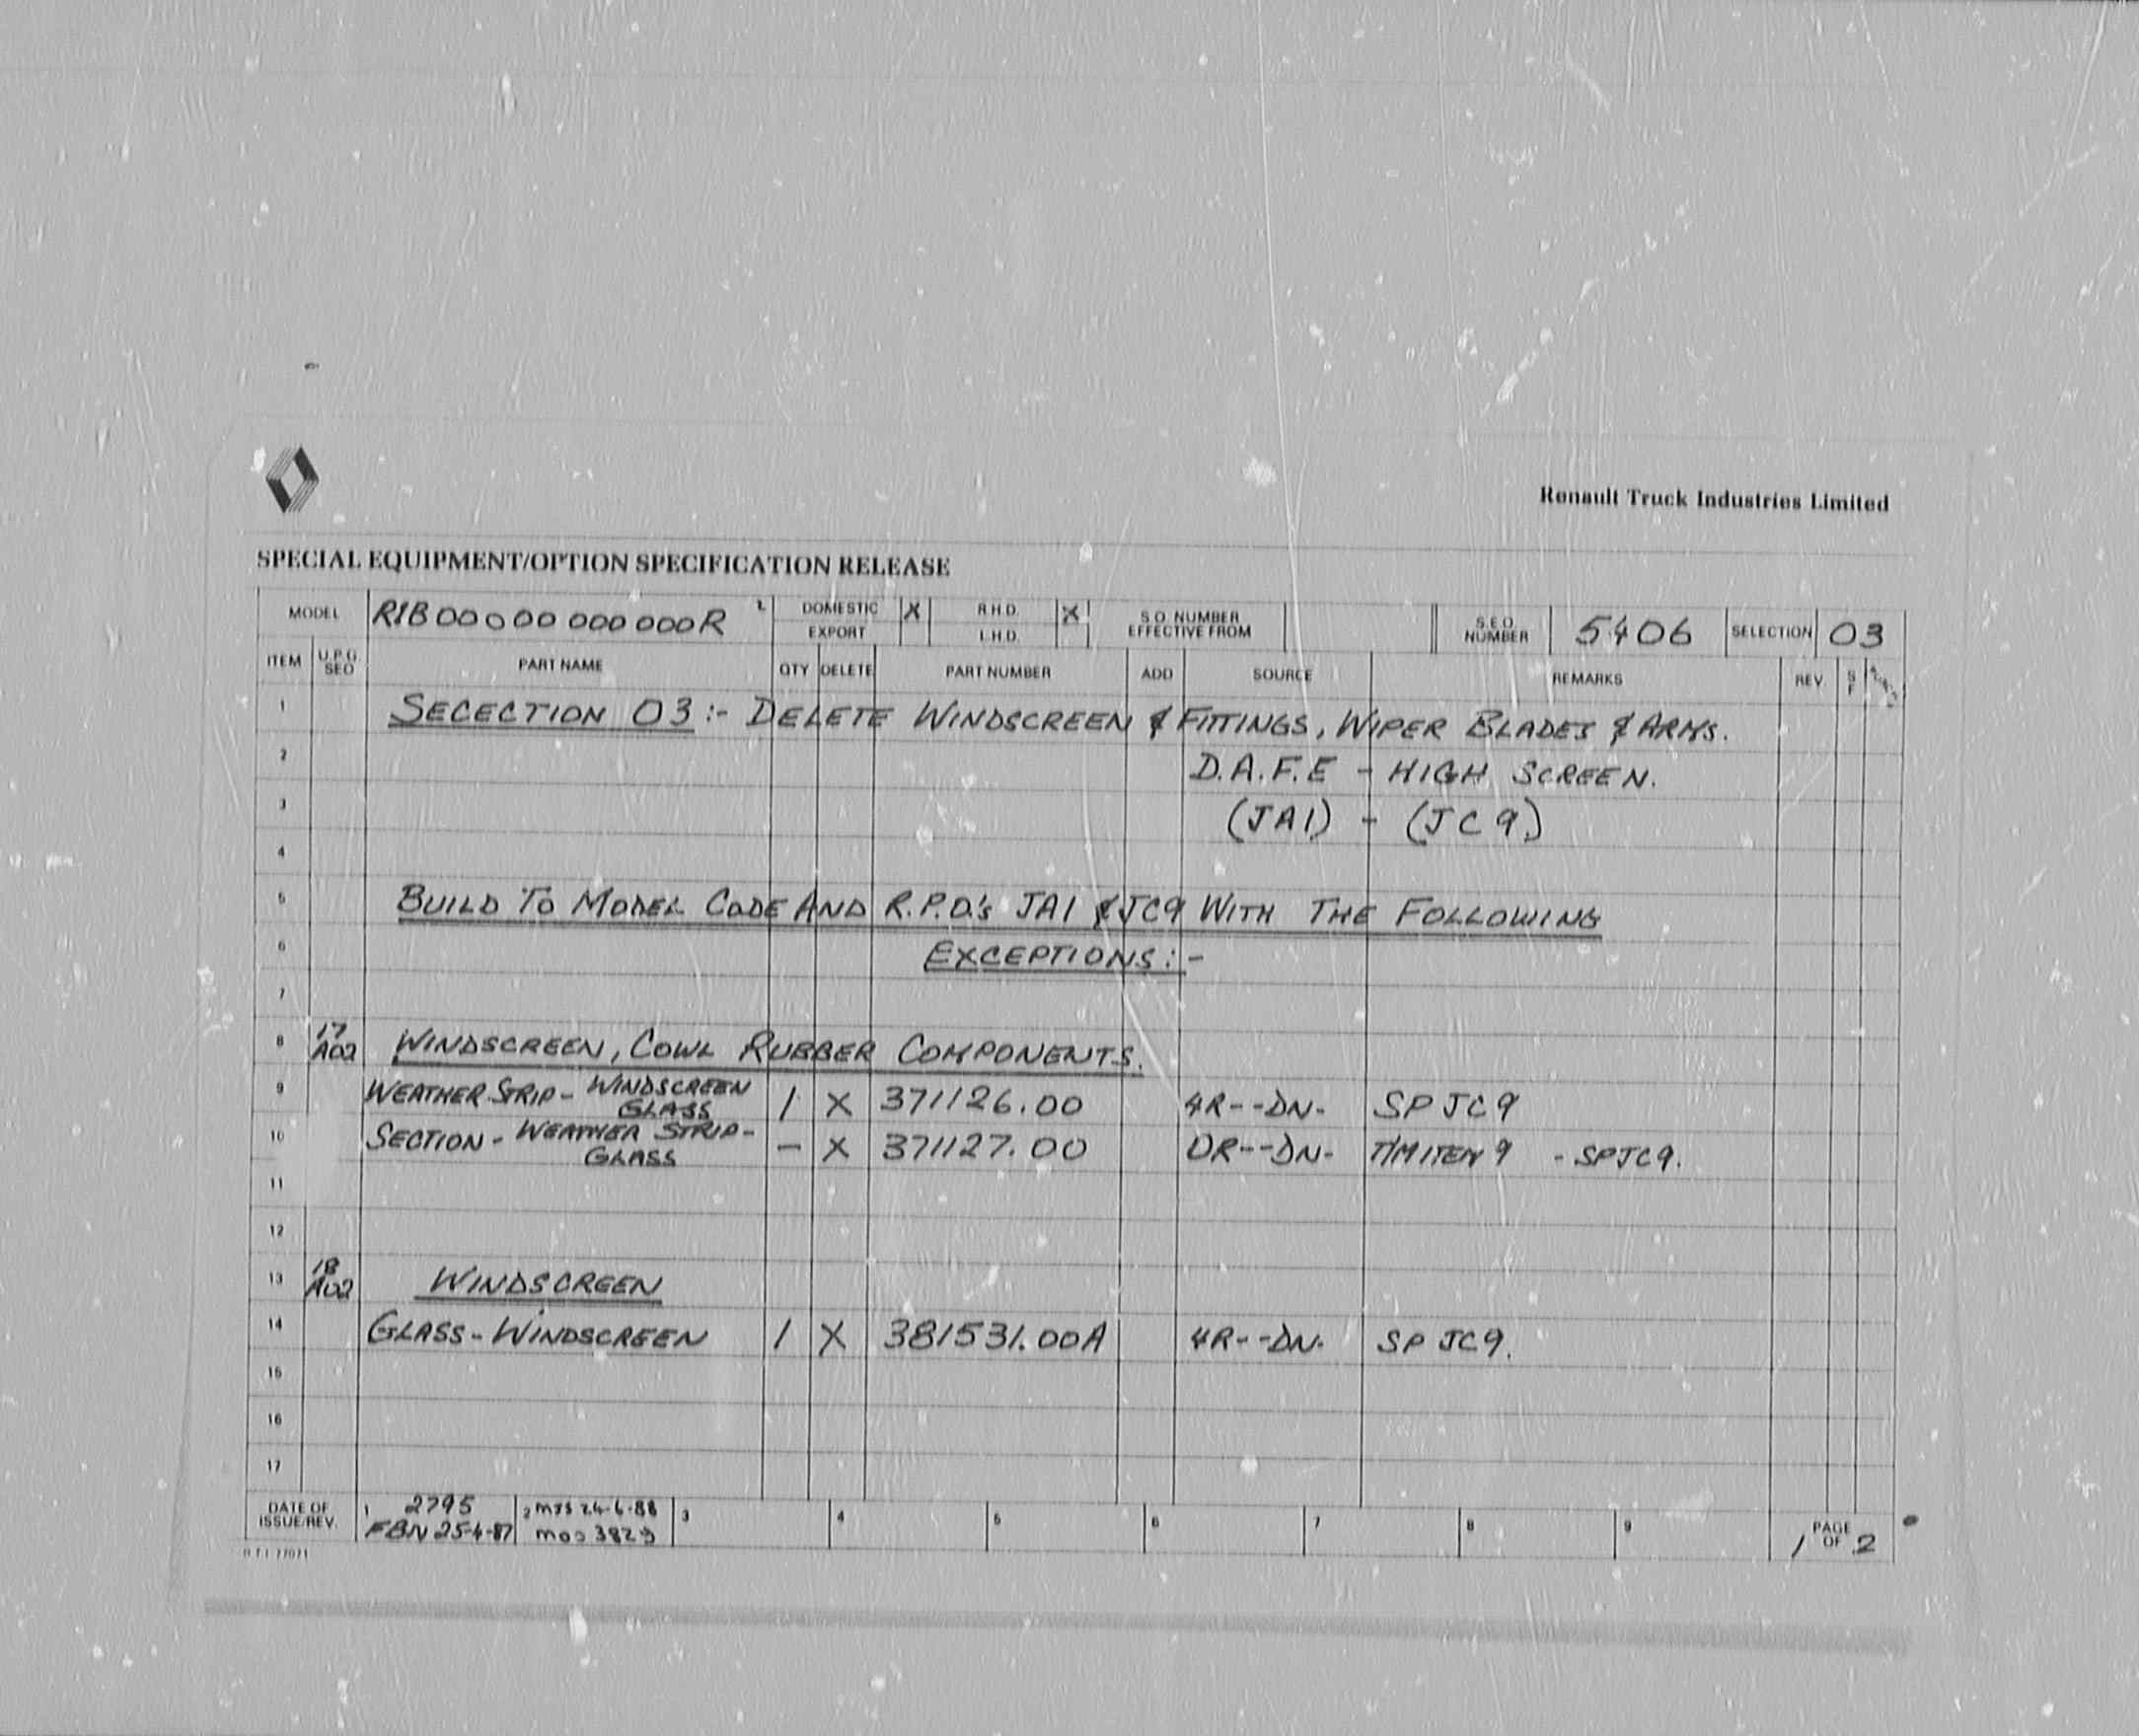 Renault Truck Industries Limited
SPECIAL EQUIPMENT/OPTION SPECIFICATION RELEASE
MODEL R1B00000000000R 2 DOMESTIC X R.H.D. X S.O. NUMBER EFFECTIVE FROM S.E.O. NUMBER 5406 SELECTION 03
EXPORT L.H.D.
ITEM U.P.G. SEQ PART NAME QTY DELETE PART NUMBER ADD SOURCE REMARKS REV. S F
1 SECECTION 03 :- DELETE WINDSCREEN & FITTINGS, WIPER BLADES & ARMS.
2 D.A.F.E - HIGH SCREEN.
3 (JA1) - (JC9.)
4
5 BUILD TO MODEL CODE AND R.P.O.'s JA1 & JC9 WITH THE FOLLOWING
6 EXCEPTIONS:-
7
8 17 A02 WINDSCREEN, COWL RUBBER COMPONENTS.
9 WEATHER STRIP - WINDSCREEN GLASS 1 X 371126.00 4R--DN- SP JC9
10 SECTION - WEATHER STRIP - GLASS - X 371127.00 0R--DN- T/M ITEM 9 - SPJC9.
11
12
13 18 A02 WINDSCREEN
14 GLASS - WINDSCREEN 1 X 381531.00A 4R--DN. SP JC9.
15
16
17
DATE OF ISSUE/REV. 1 2795 FBN 25-4-87 2 MJS 24-6-88 3 4 5 6 7 8 9 1 PAGE OF 2
R.T.I. 77071